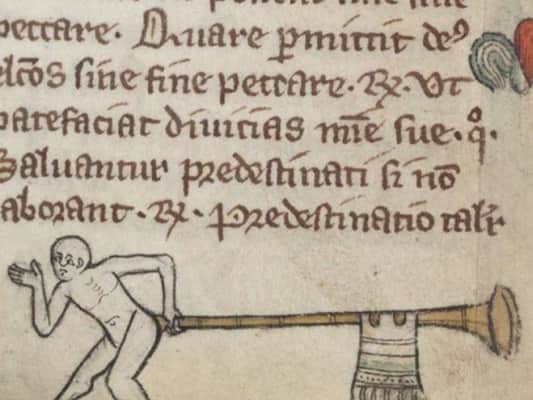 peccare. Quare ꝑmittit deꝰ
elc̄os sine fine peccare. R̷. Vt
patefaciat diuicias mīe sue. q̊.
Saluantur predestinati si nō
laborant. R̷. Predestinatio talr̄